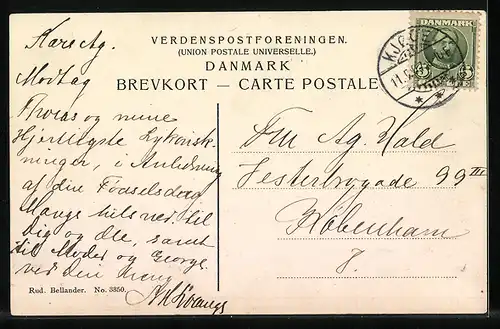 VERDENSPOSTFORENINGEN.
(UNION POSTALE UNIVERSELLE.)
DANMARK
BREVKORT – CARTE POSTALE
DANMARK
5
KJØGE
11.
Kære Ag.
Modtag
og mine
Hjerteligste Lykønsk-
ninger, i Anledning
af din Fødselsdag
Mange hilsner til
dig og alle, samt
til Moder og George
ved den
Frk Ag. Wald
Vesterbrogade 99 III
København
V.
Rud. Bellander. No. 3850.